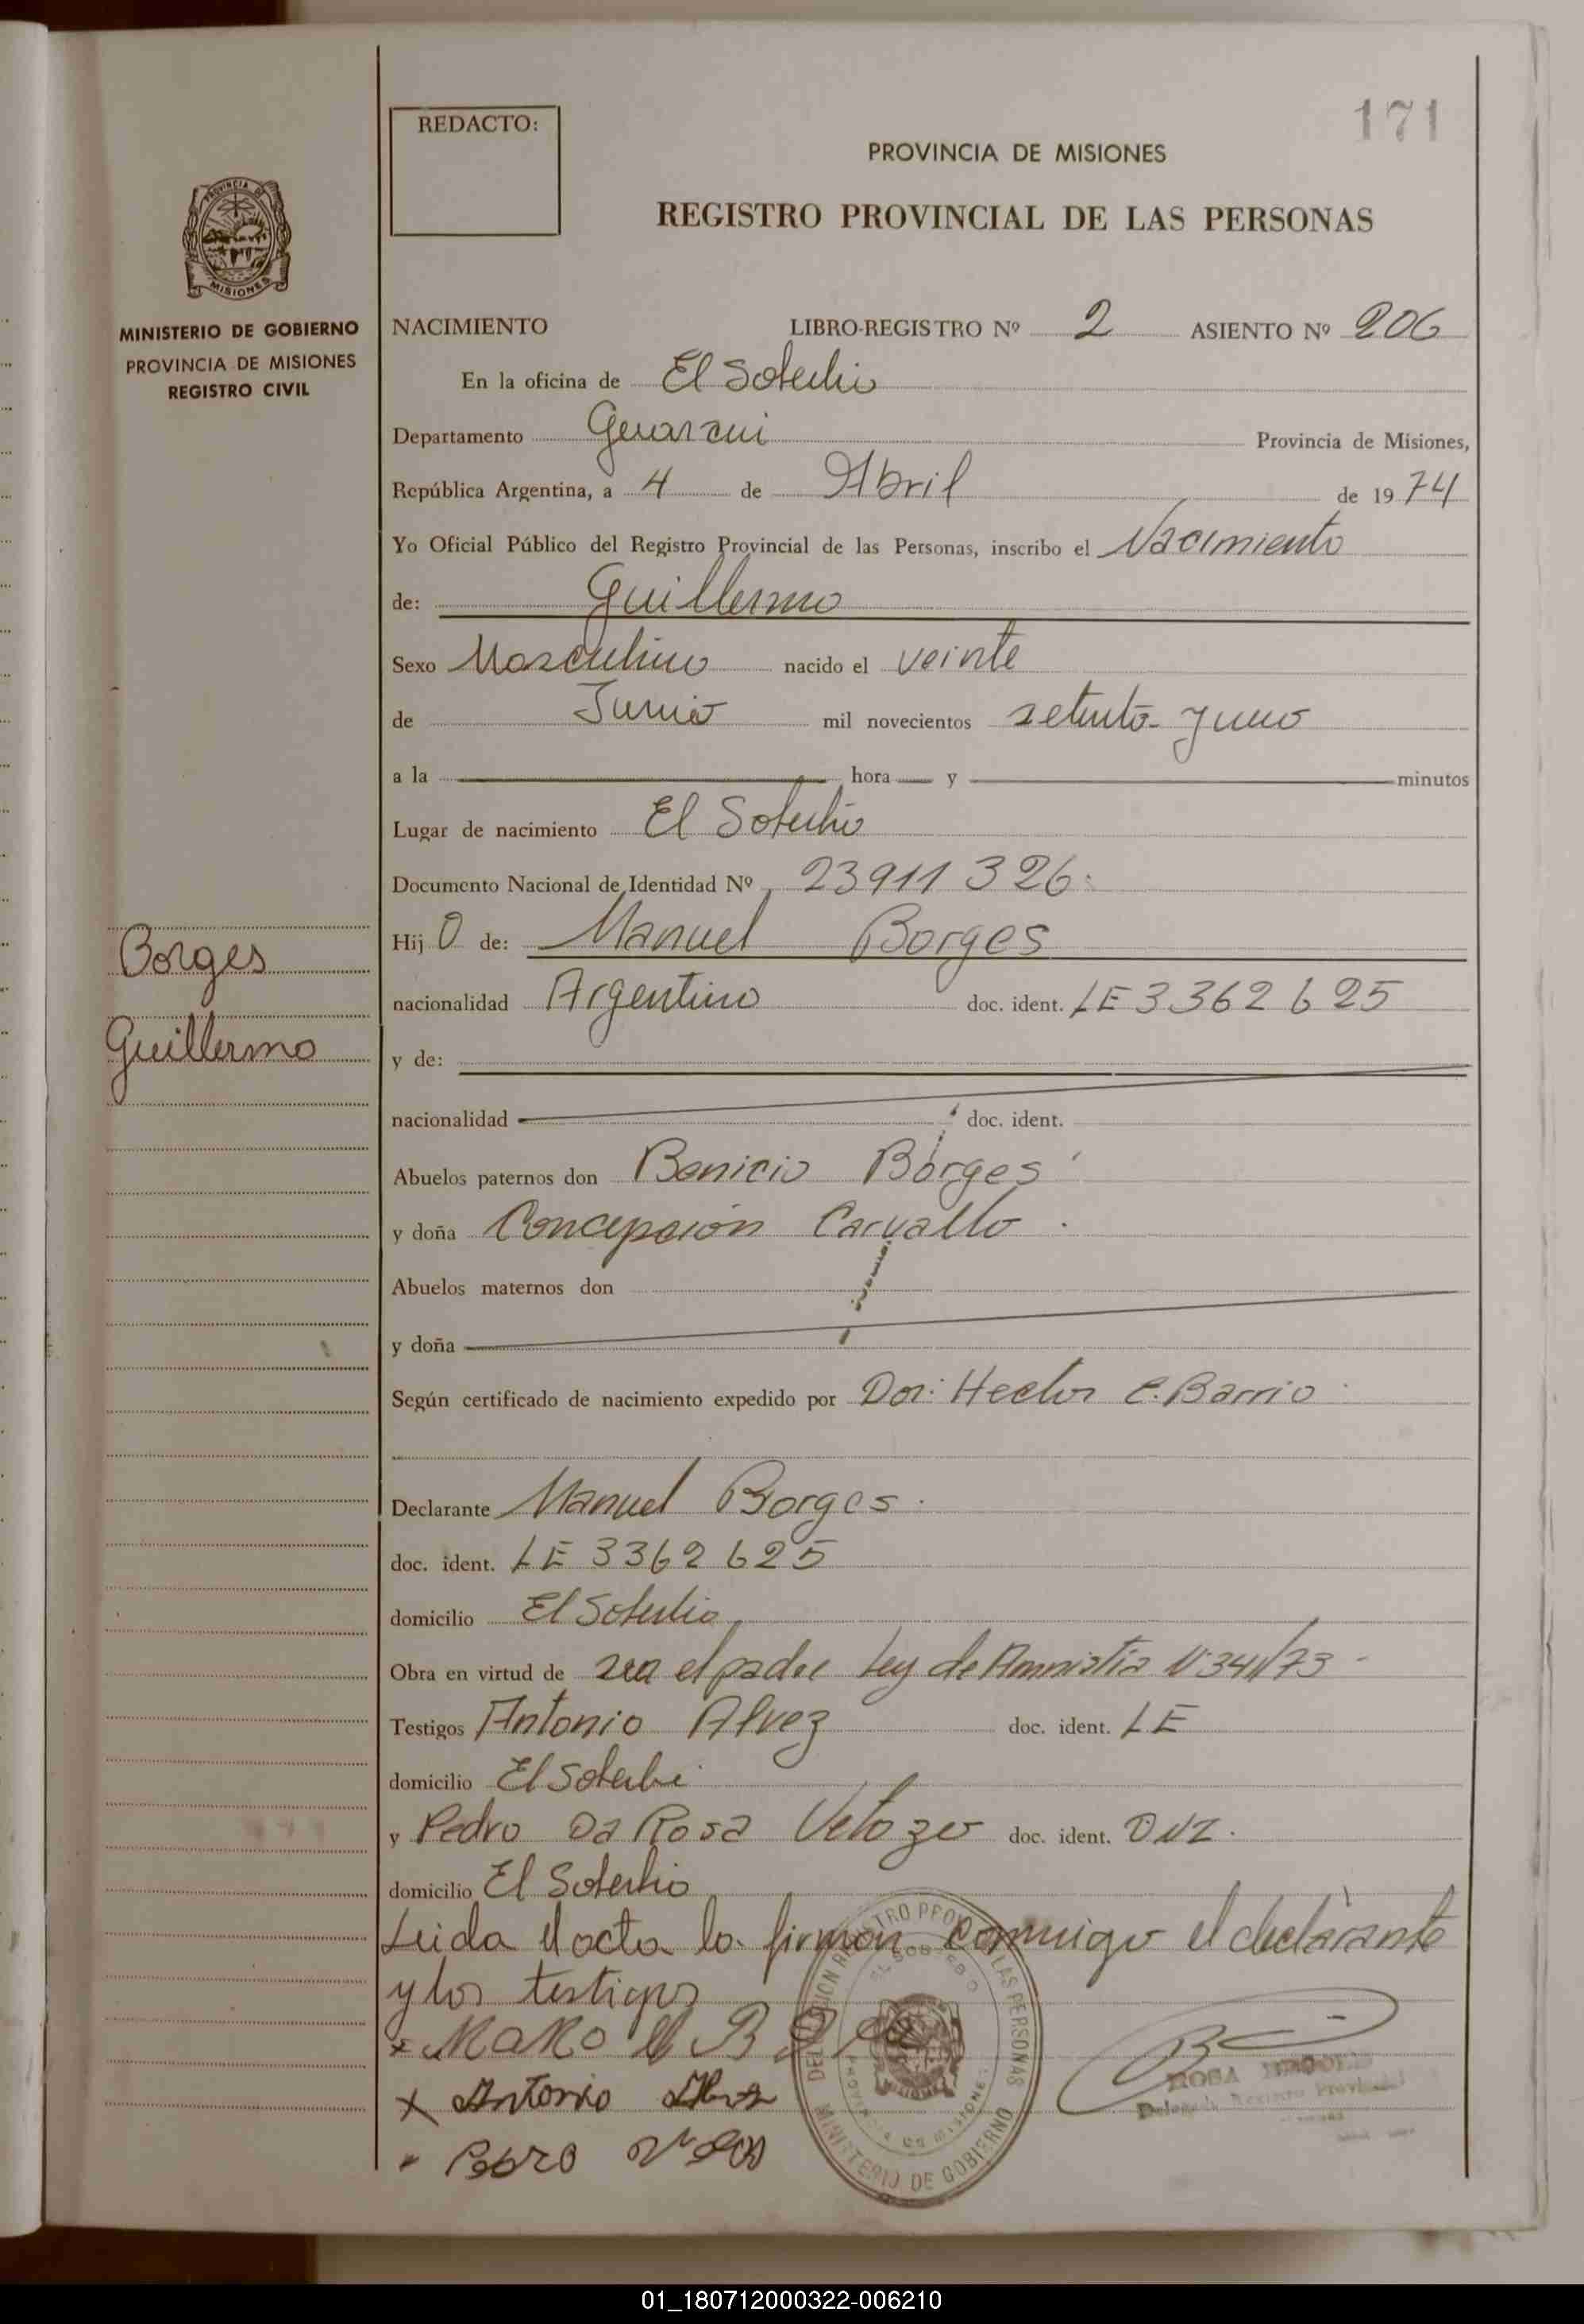 171
REDACTO:
PROVINCIA DE MISIONES
REGISTRO PROVINCIAL DE LAS PERSONAS
PROVINCIA DE
MISIONES
MINISTERIO DE GOBIERNO
PROVINCIA DE MISIONES
REGISTRO CIVIL
NACIMIENTO LIBRO-REGISTRO Nº 2 ASIENTO Nº 206
En la oficina de El Soberbio
Departamento Guarani Provincia de Misiones,
República Argentina, a 4 de Abril de 1974
Yo Oficial Público del Registro Provincial de las Personas, inscribo el Nacimiento
de: Guillermo
Sexo Masculino nacido el veinte
de Junio mil novecientos setenta y uno
a la hora y minutos
Lugar de nacimiento El Soberbio
Documento Nacional de Identidad Nº 23911326.
Hijo de: Manuel Borges
Borges
Guillermo
nacionalidad Argentino doc. ident. LE 3362625
y de:
nacionalidad doc. ident.
Abuelos paternos don Benicio Borges
y doña Concepción Carvallo.
Abuelos maternos don
y doña
Según certificado de nacimiento expedido por Dor: Hector C. Barrio
Declarante Manuel Borges.
doc. ident. LE 3362625
domicilio El Soberbio
Obra en virtud de ser el padre Ley de Amnistía Nº 341/73
Testigos Antonio Alvez doc. ident. LE
domicilio El Soberbio
y Pedro Da Rosa Velozo doc. ident. DNI.
domicilio El Soberbio
Leida el acta la firman conmigo el declarante
y los testigos
DELEGACION REGISTRO PROV. LAS PERSONAS
EL SOBERBIO
PROVINCIA DE MISIONES
MINISTERIO DE GOBIERNO
x Antonio
Pedro
ROSA
Registro Provincial
01_180712000322-006210